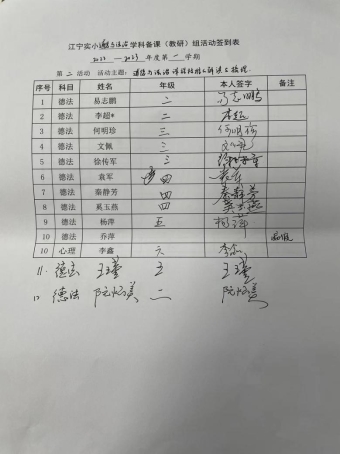 江宁实小道德与法治学科备课（教研）组活动签到表
2022—2023年度第一学期
第二活动 活动主题：道德与法治课程
序号 科目 姓名 年级 本人签字 备注
1 德法 易志鹏 二 易志鹏
2 德法 李超* 二 李超
3 德法 何明珍 三 何明珍
4 德法 文佩 三
5 德法 徐传军 三 徐传军
6 德法 袁军 四 袁军
7 德法 秦静芳 四 秦静芳
8 德法 奚玉燕 四 奚玉燕
9 德法 杨萍 五 杨萍
10 德法 乔萍
10 心理 李鑫 六 李鑫
11. 德法 王瑾 五 王瑾
12 德法 阮炳美 二 阮炳美